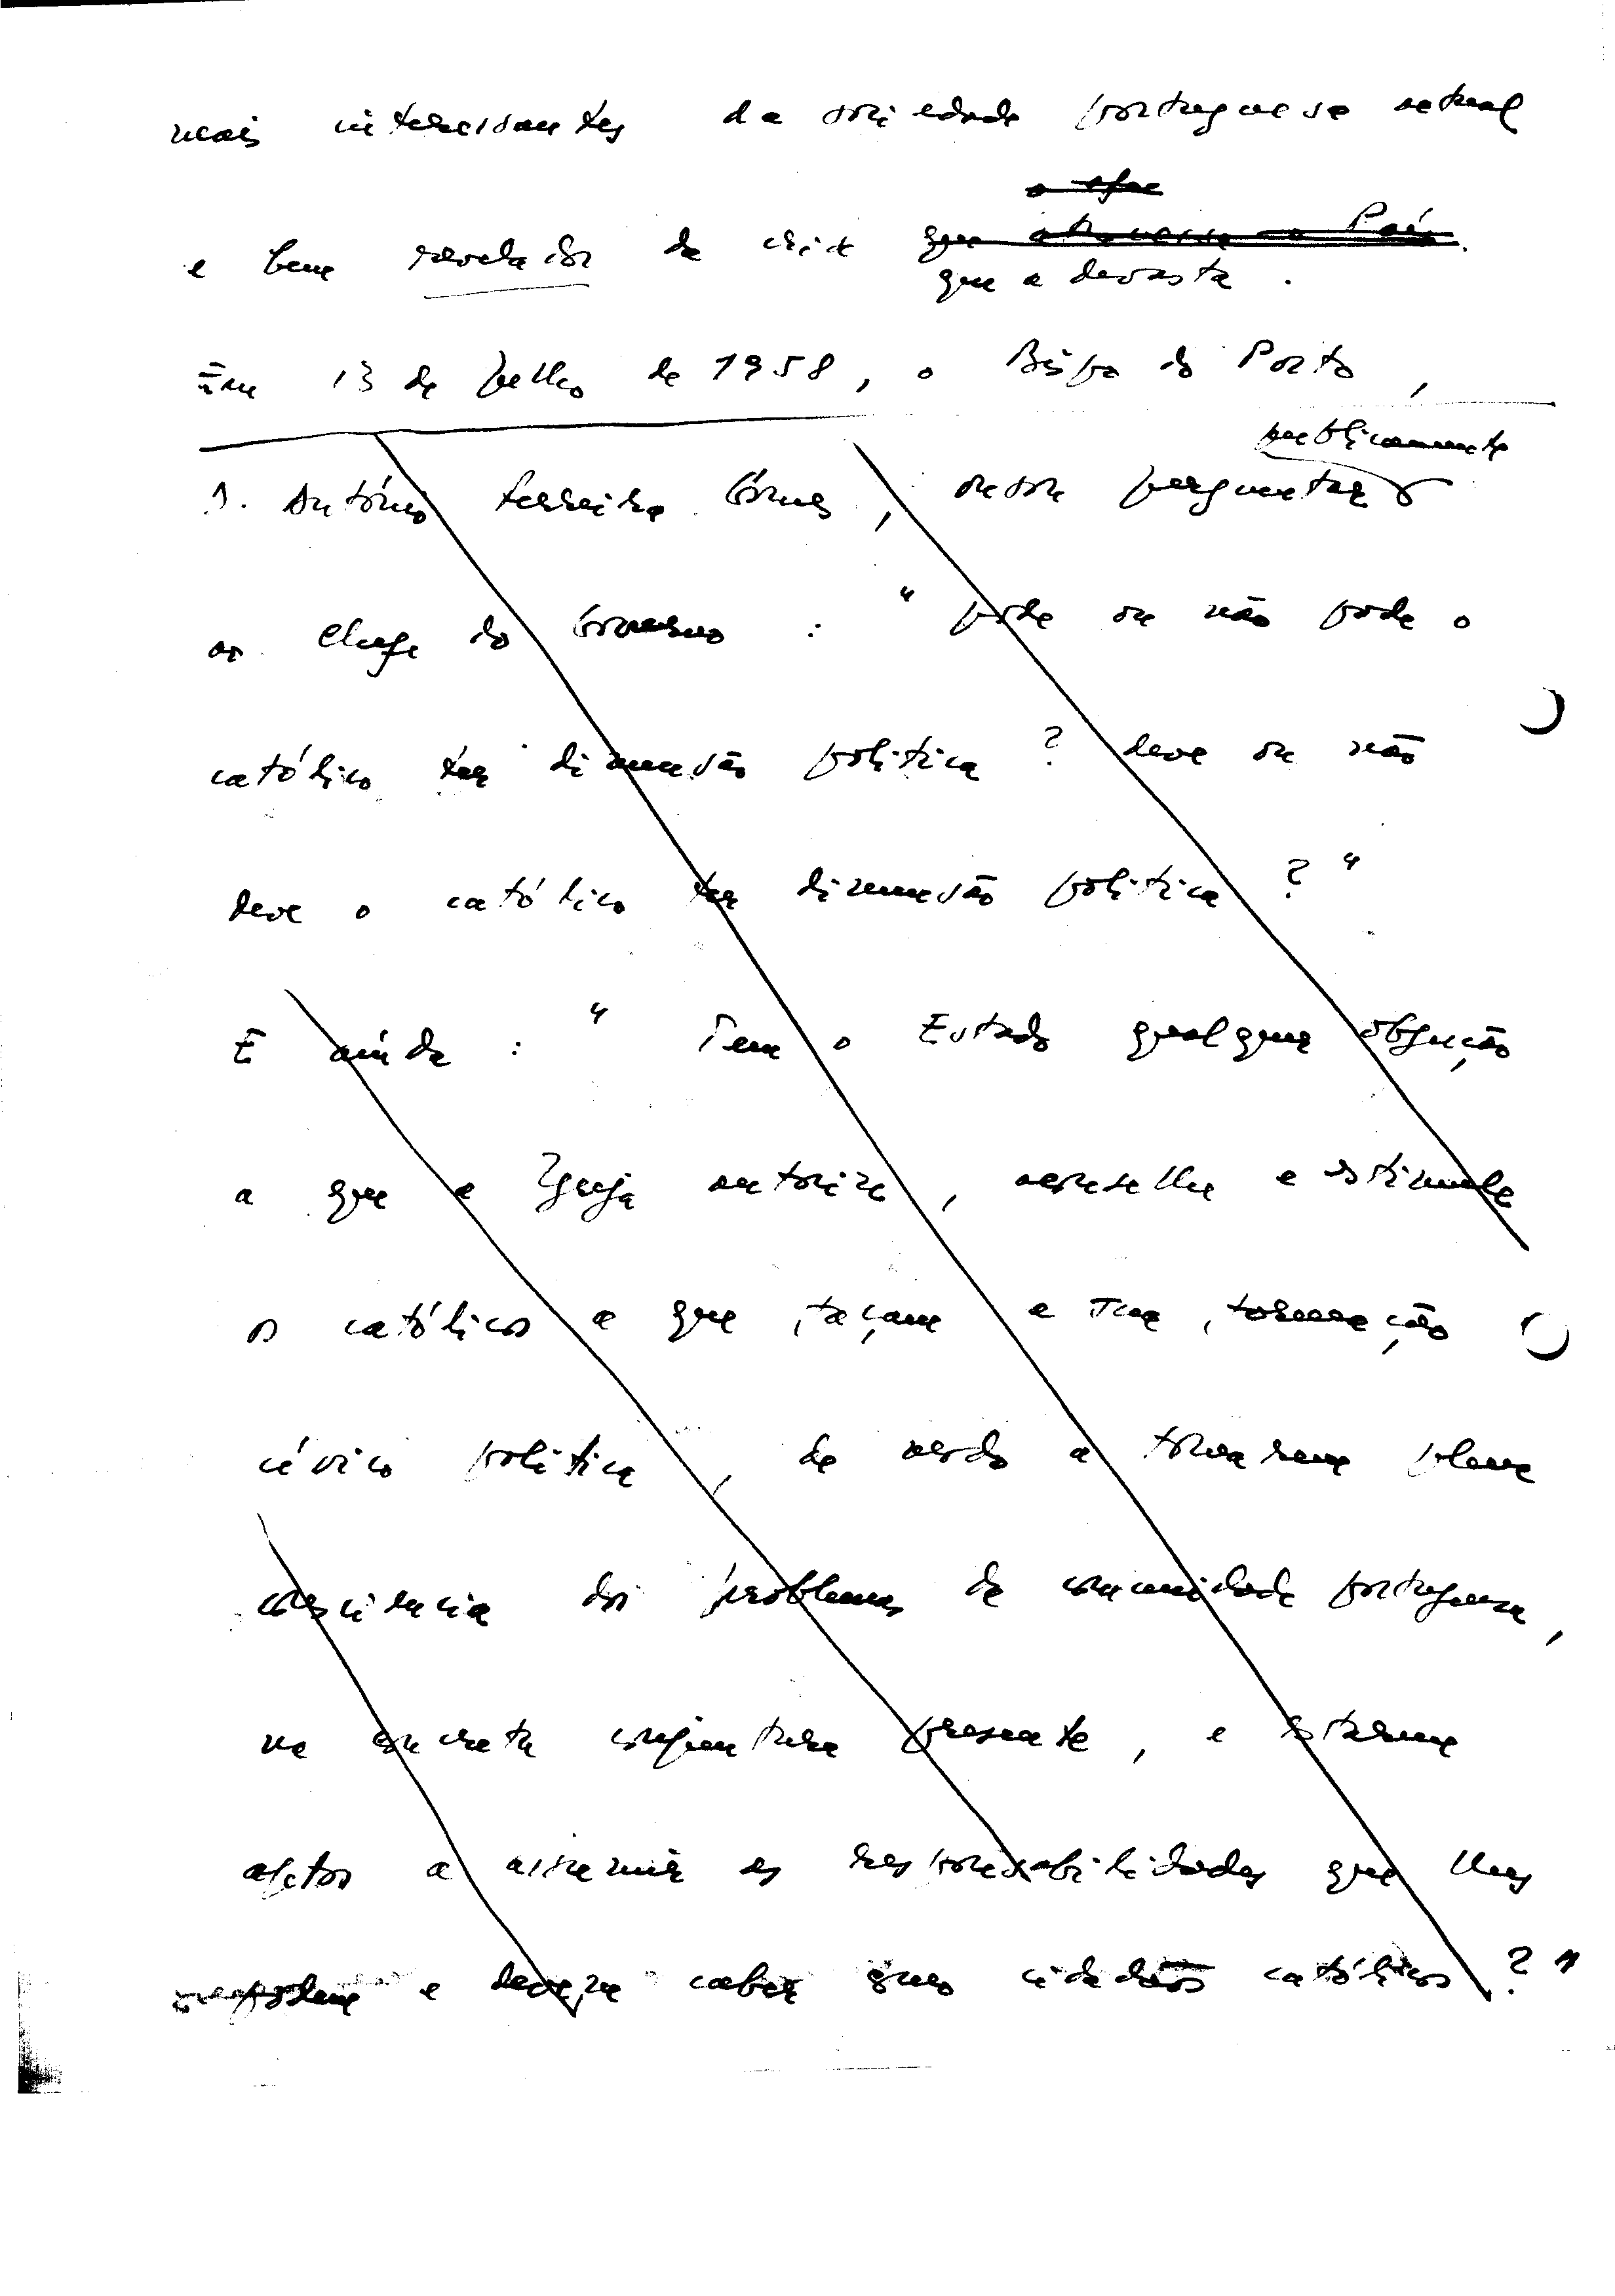 mais interessantes da sociedade portuguesa actual
e bem revelador da crise que atravessa o País.
que a devasta.
Em 13 de Julho de 1958, o Bispo do Porto,
publicamente
D. António Ferreira Gomes, ousou perguntar
ao Chefe do Governo : "pode ou não pode o
católico ter dimensão política ? deve ou não
deve o católico ter dimensão política ?"
E ainda : "Tem o Estado qualquer objecção
a que a Igreja autorize, aconselhe e estimule
os católicos a que façam a sua formação
cívico política, de modo a tomarem plena
consciência dos problemas da comunidade portuguesa,
na concreta conjuntura presente, e estarem
aptos a assumir as responsabilidades que lhes
podem e devem caber como cidadãos católicos ?"